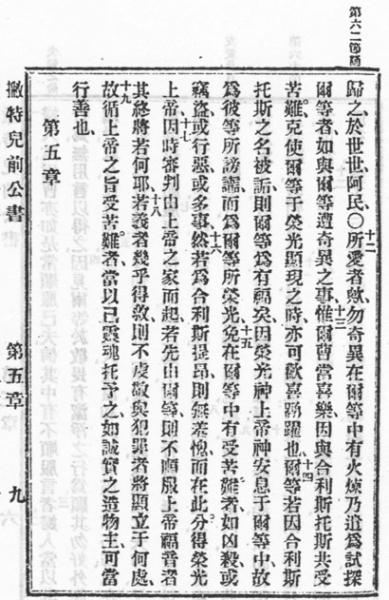 第六二節
歸之於世世阿民、○所愛者歟勿奇異在爾等中有火煉乃遣爲試探
十二
爾等者如與爾等遭奇異之事惟爾曹當喜樂因與合利斯托斯共受
十三
苦難克使爾等于榮光顯現之時亦可歡喜踴躍也爾等若因合利斯
十四
托斯之名被詬則爾等爲有福矣因榮光神上帝神安息于爾等中故
爲彼等所謗讟而爲爾等所榮光免在爾等中有受苦難者如凶殺或
十五
竊盜或行惡或多事然若爲合利斯提昂則無羞愧而在此分得榮光
十六
上帝因時審判由上帝之家而起若先由爾等則不順服上帝福音者
十七
其終將若何耶若義者幾乎得救則不虔敬與犯罪者將顯立于何處、
十八
故循上帝之旨受苦難者當以己靈魂托予之如誠實之造物主可當
十九
行善也、
第五章
撇特兒前公書 第五章 九